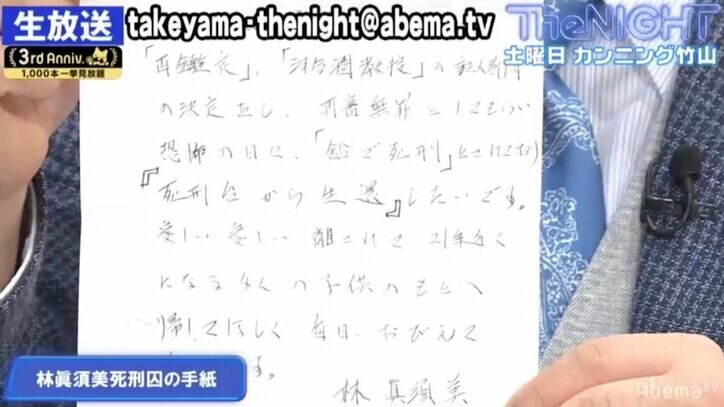 生放送
takeyama-thenight@abema.tv
TheNIGHT
3rd Anniv.
1,000本一挙見放題
土曜日 カンニング竹山
「再鑑定」、「河合潤教授」の証人尋問
の決定 し、再審無罪としてもらい
恐怖の日々、「 で死刑」とされて
『死刑台から生還』したいです。
愛しい 愛しい 離されて21年近く
になる4人の子供のもとへ
帰してほしく 毎日 おびえて
ます。
林 眞須美
林眞須美死刑囚の手紙
AbemaTV